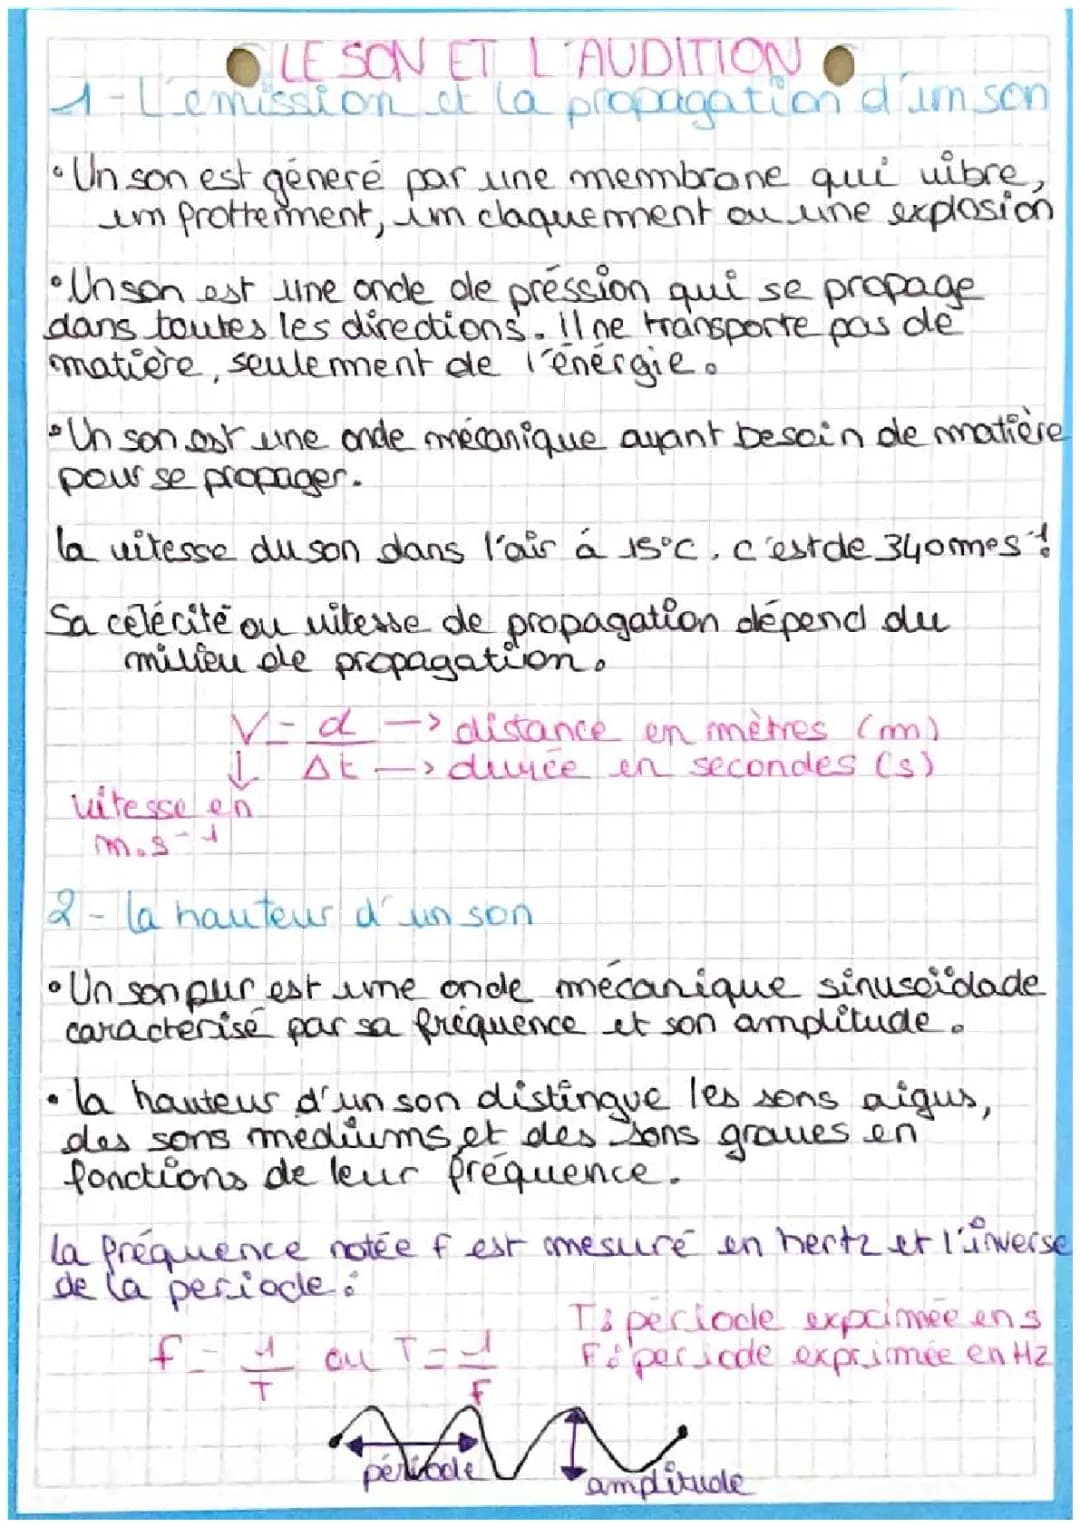 LE SON ET L'AUDITION
1-L'émission et la propagation d'un son
• Un son est géneré par une membrane qui vibre,
un frottement, un claquement ou une explosion
• Un son est une onde de préssion qui se propage
dans toutes les directions. Il ne transporte pas de
matière, seulement de l'énérgie.
• Un son est une onde mécanique ayant besoin de matière
pour se propager.
la vitesse du son dans l'air á 15°C, c'est de 340mes-1.
Sa celécité ou vitesse de propagation dépend du
milieu de propagation.
V = d → distance en mètres (m)
↓ Δt → durée en secondes (s)
vitesse en
m.s-1
2 - la hauteur d'un son
• Un son pur est une onde mécanique sinusoïdade
caracterisé par sa fréquence et son amplitude.
• la hauteur d'un son distingue les sons aigus,
des sons mediums et des sons graves en
fonctions de leur fréquence.
la fréquence notée f est mesuré en hertz et l'inverse
de la periode :
T: période exprimée en s
f = 1/T ou T = 1/F F: periode exprimée en Hz
période
amplitude